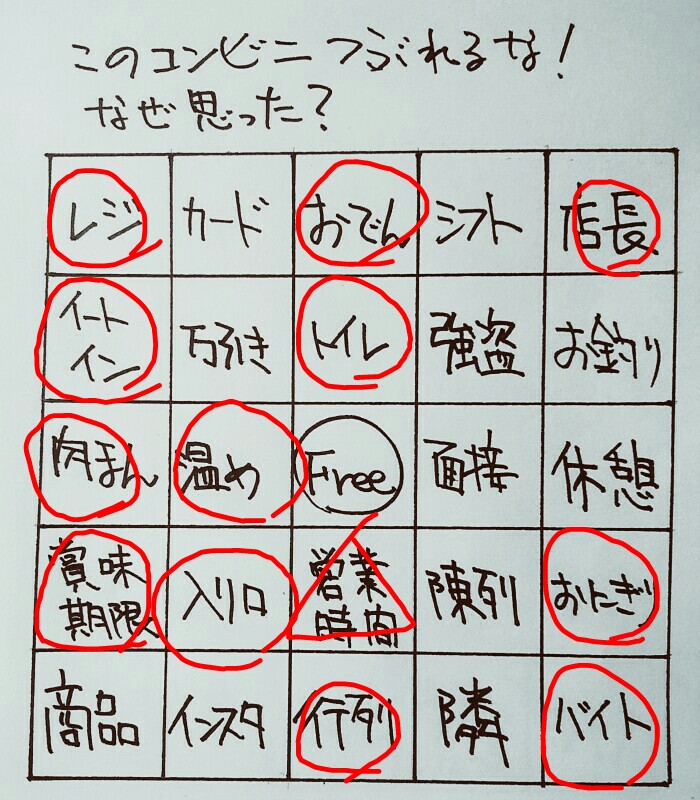 このコンビニつぶれるな!
なぜ思った?
レジ カード おでん シフト 店長
イート
イン 万引き トイレ 強盗 お釣り
肉まん 温め Free 面接 休憩
賞味
期限 入り口 営業
時間 陳列 おにぎり
商品 インスタ 行列 隣 バイト